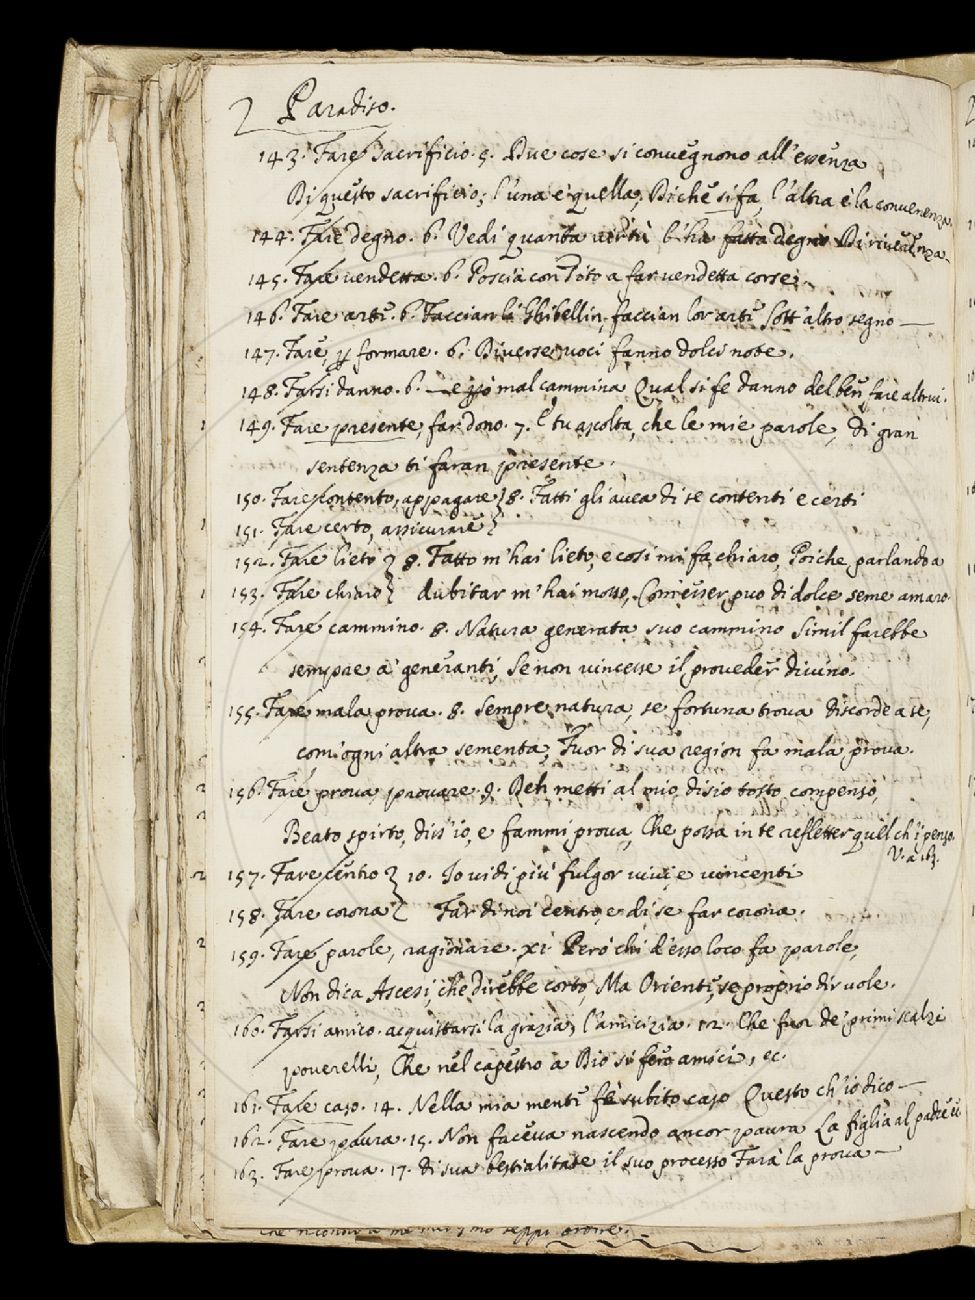 2 Paradiso.
143. Fare sacrificio. 5. Due cose si convegnono all'essenza
Di questo sacrificio; l'una è quella, Di che si fa, l'altra è la convenenza.
144. Fare degno. 6. Vedi quanta virtù l'ha fatto degno Di riverenza.
145. Fare vendetta. 6. Poscia con Tito a far vendetta corse.
146. Fare arte. 6. Faccian li Ghibellin, faccian lor arte Sott'altro segno —
147. Fare, p formare. 6. Diverse voci fanno dolci note.
148. Farsi danno. 6. — e pò mal cammina Qual si fe danno del ben fare altrui.
149. Fare presente, far dono. 7. E tu ascolta, che le mie parole, Di gran
sentenza ti faran presente.
150. Fare contento, appagare } 8. Fatti gli avea di se contenti e certi
151. Fare certo, assicurare }
152. Fare lieto } 8. Fatto m'hai lieto, e così mi fa chiaro, Poiche parlando a
153. Fare chiaro } dubitar m'hai mosso, Com'esser puo di dolce seme amaro.
154. Fare cammino. 8. Natura generata suo cammino Simil farebbe
sempre a' generanti, Se non vincesse il proveder divino.
155. Fare mala prova. 8. Sempre natura, se fortuna trova discorde a se,
com'ogni altra sementa, Fuor di sua region fa mala prova.
156. Fare prova, provare. 9. Deh metti al mio disio tosto compenso,
Beato spirto, diss'io, e fammi prova, Che possa in te refletter quel ch'i penso.
V. a 163.
157. Fare centro } 10. Io vidi più fulgor vivi e vincenti
158. Fare corona } Far di noi centro, e di se far corona.
159. Fare parole, ragionare. xi. Però chi d'esso loco fa parole,
Non dica Ascesi, che direbbe corto, Ma Oriente, se proprio dir vole.
160. Farsi amico. acquistarsi la grazia, l'amicizia. 12. Che fur de' primi scalzi
poverelli, Che nel capestro a Dio si fero amici, ec.
161. Fare caso. 14. Nella mia mente fè subito caso Questo ch'io dico —
162. Fare paura. 15. Non faceva nascendo ancor paura La figlia al padre
163. Fare prova. 17. di sua bestialitate il suo processo Farà la prova —